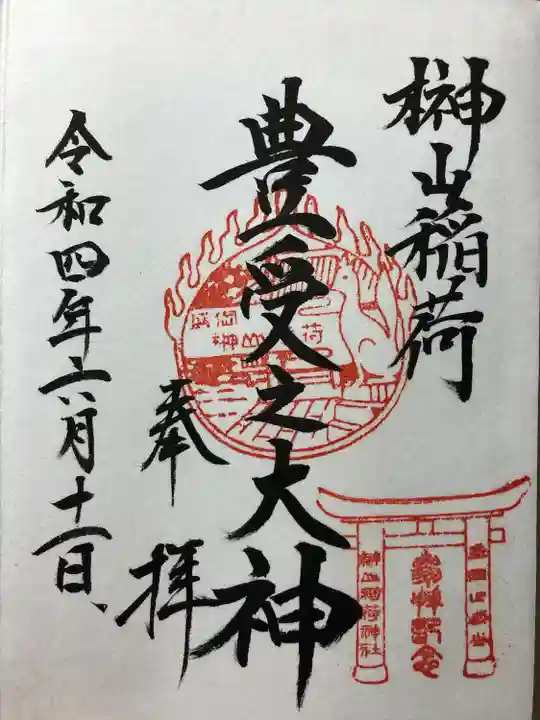 榊山稲荷
豊受之大神
奉拝
令和四年六月十一日、
盛岡
榊山稲荷
参拝記念
榊山稲荷神社